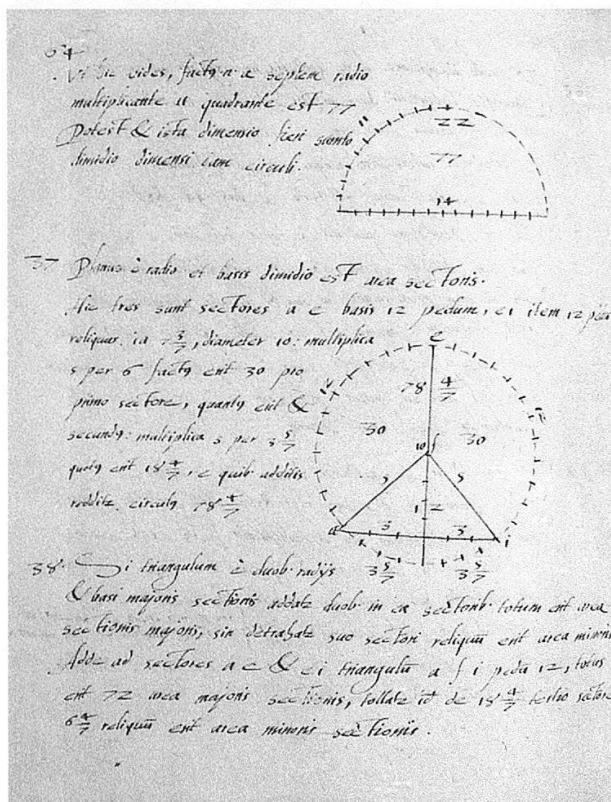 64
Vt hic vides, factq a septem radio
multiplicante 11 quadrante est 77
Potest & ista dimensio fieri sumto
dimidio dimensi iam circuli.
11
22
77
14
37 Planus è radio et basis dimidio est area sectoris.
Hic tres sunt sectores a e basis 12 pedum, e i item 12 pedu
reliquar. ia 7 5/7, diameter 10: multiplica
5 per 6 factq erit 30 pro
primo sectore, quantq erit &
secundq: multiplica 5 per 3 5/7
quotq erit 18 4/7, e quib additis
reddite circulq 78 4/7
e
78 4/7
30
30
10
f
5
5
1
2
a
3
3
i
3 5/7
3 5/7
38. Si triangulum è duob radijs
& basi majoris sectionis addate duob in ea sectorib totum erit area
sectionis majoris, sin detrahate suo sectori reliquũ erit area minoris
Adde ad sectores a e & e i triangulũ a f i pedu 12, totus
erit 72 area majoris sectionis, tollate id de 18 4/7 tertio sectore
6 4/7 reliquũ erit area minoris sectionis.